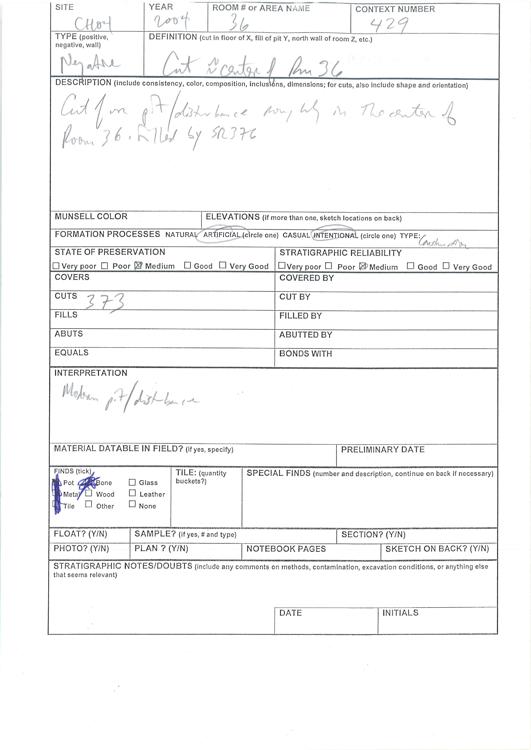 SITE YEAR ROOM # or AREA NAME CONTEXT NUMBER
CH04 2004 36 429
TYPE (positive, negative, wall) DEFINITION (cut in floor of X, fill of pit Y, north wall of room Z, etc.)
Negative Cut in center of Rm 36
DESCRIPTION (include consistency, color, composition, inclusions, dimensions; for cuts, also include shape and orientation)
Cut for pit/disturbance roughly in the center of
Room 36. Filled by SR376
MUNSELL COLOR ELEVATIONS (if more than one, sketch locations on back)
FORMATION PROCESSES NATURAL ARTIFICIAL (circle one) CASUAL INTENTIONAL (circle one) TYPE:
STATE OF PRESERVATION STRATIGRAPHIC RELIABILITY
Very poor Poor Medium Good Very Good Very poor Poor Medium Good Very Good
COVERS COVERED BY
CUTS 373 CUT BY
FILLS FILLED BY
ABUTS ABUTTED BY
EQUALS BONDS WITH
INTERPRETATION
Modern pit/disturbance
MATERIAL DATABLE IN FIELD? (if yes, specify) PRELIMINARY DATE
FINDS (tick) TILE: (quantity buckets?) SPECIAL FINDS (number and description, continue on back if necessary)
Pot Bone Glass
Metal Wood Leather
Tile Other None
FLOAT? (Y/N) SAMPLE? (if yes, # and type) SECTION? (Y/N)
PHOTO? (Y/N) PLAN ? (Y/N) NOTEBOOK PAGES SKETCH ON BACK? (Y/N)
STRATIGRAPHIC NOTES/DOUBTS (include any comments on methods, contamination, excavation conditions, or anything else
that seems relevant)
DATE INITIALS